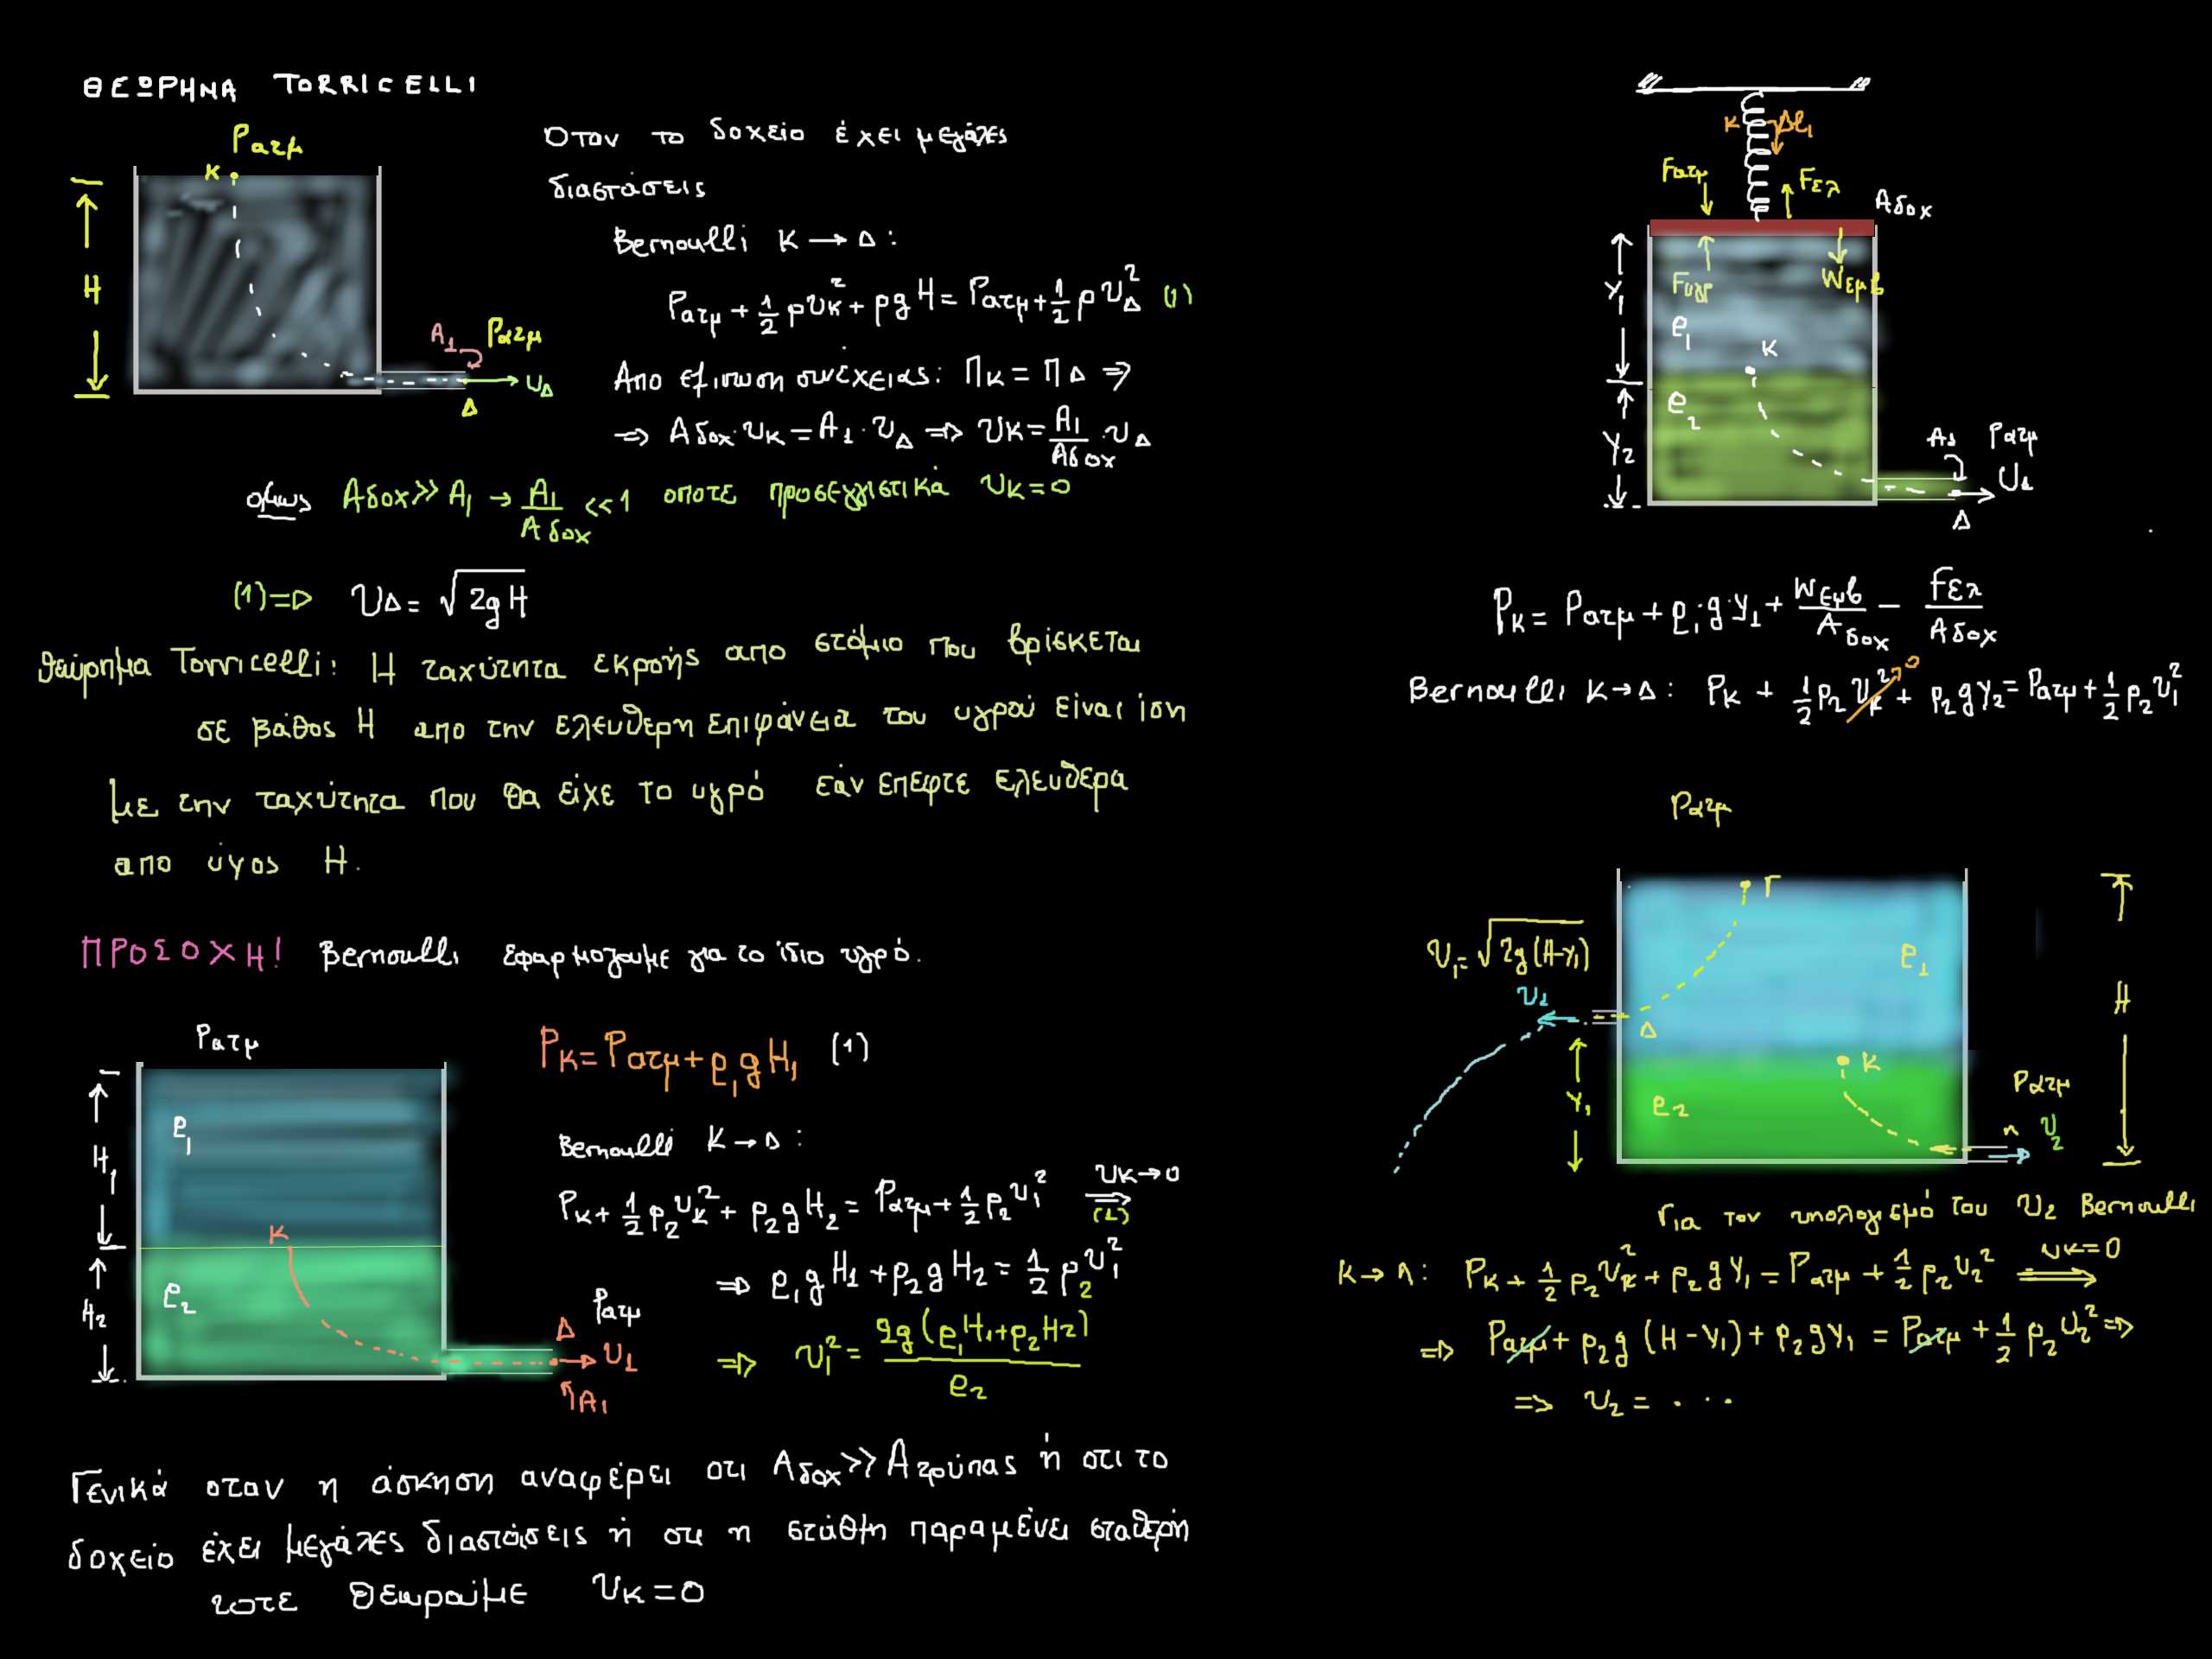 ΘΕΩΡΗΜΑ TORRICELLI
Pατμ
K
H
A1 Pατμ
υΔ
Δ
Οταν το δοχείο έχει μεγάλες
διαστάσεις
Bernoulli K → Δ:
Pατμ + 1/2 ρυK² + ρgH = Pατμ + 1/2 ρυΔ² (1)
Απο εξισωση συνέχειας: ΠK = ΠΔ ⇒
⇒ Aδοχ·υK = A1·υΔ ⇒ υK = A1/Aδοχ·υΔ
ομως Aδοχ >> A1 → A1/Aδοχ << 1 οποτε προσεγγιστικά υK = 0
(1) ⇒ υΔ = √2gH
Θεώρημα Torricelli: Η ταχύτητα εκροής απο στόμιο που βρίσκεται
σε βάθος H απο την ελευθερη επιφάνεια του υγρού είναι ίση
με την ταχύτητα που θα είχε το υγρό εάν επεφτε ελευθερα
απο ύψος H.
ΠΡΟΣΟΧΗ! Bernoulli εφαρμοζουμε για το ίδιο υγρό.
Pατμ
H1
ρ1
K
H2
ρ2
Δ Pατμ
υ1
A1
PK = Pατμ + ρ1gH1 (1)
Bernoulli K → Δ:
PK + 1/2 ρ2υK² + ρ2gH2 = Pατμ + 1/2 ρ2υ1² υK→0 ⇒ (1)
⇒ ρ1gH1 + ρ2gH2 = 1/2 ρ2υ1²
⇒ υ1² = 2g(ρ1H1+ρ2H2)/ρ2
Γενικά οταν η άσκηση αναφέρει οτι Aδοχ >> Aτρύπας ή οτι το
δοχείο έχει μεγάλες διαστάσεις ή οτι η στάθμη παραμένει σταθερή
τοτε θεωρούμε υK = 0
K Δl1
Fατμ Fελ
Aδοχ
Fυγρ Wεμβ
Y1
ρ1
K
ρ2
Y2
A1 Pατμ
υ1
Δ
PK = Pατμ + ρ1·g·Y1 + Wεμβ/Aδοχ − Fελ/Aδοχ
Bernoulli K→Δ: PK + 1/2 ρ2υK² 0 + ρ2gY2 = Pατμ + 1/2 ρ2υ1²
Pατμ
Γ
υ1 = √2g(H-Y1)
ρ1
υ1
Δ
H
K
Y1
ρ2
Pατμ
Λ υ2
Για τον υπολογισμό του υ2 Bernoulli
K → Λ: PK + 1/2 ρ2υK² + ρ2gY1 = Pατμ + 1/2 ρ2υ2² υK=0 ⇒
⇒ Pατμ + ρ2g(H-Y1) + ρ2gY1 = Pατμ + 1/2 ρ2υ2² ⇒
⇒ υ2 = . . .